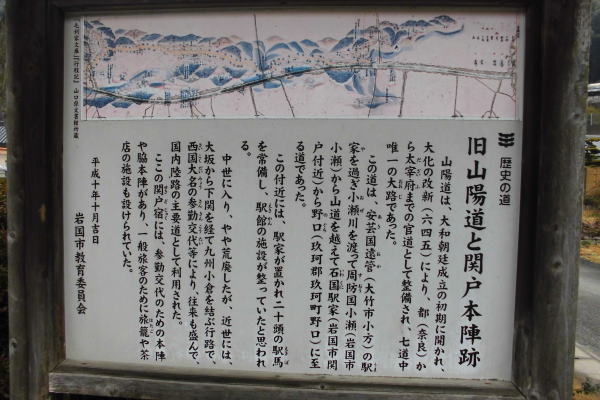 歴史の道
旧山陽道と関戸本陣跡
山陽道は、大和朝廷成立の初期に開かれ、
大化の改新(六四五)により、都(奈良)か
ら太宰府までの官道として整備され、七道中
唯一の大路であった。
この道は、安芸国遠管(大竹市小方)の駅
家を過ぎ小瀬川を渡って周防国小瀬(岩国市
小瀬)から山道を越えて石国駅家(岩国市関
戸付近)から野口(玖珂郡玖珂町野口)に至
る道であった。
この付近には、駅家が置かれ二十頭の駅馬
を常備し、駅館の施設が整っていたと思われ
る。
中世に入り、やや荒廃したが、近世には、
大坂から下関を経て九州小倉を結ぶ行路で、
西国大名の参勤交代等により、往来も盛んで、
国内陸路の主要道として利用された。
ここの関戸宿には、参勤交代のための本陣
や脇本陣があり、一般旅客のために旅籠や茶
店の施設も設けられていた。
平成十年十月吉日
岩国市教育委員会
毛利家文庫『行程記』山口県文書館所蔵